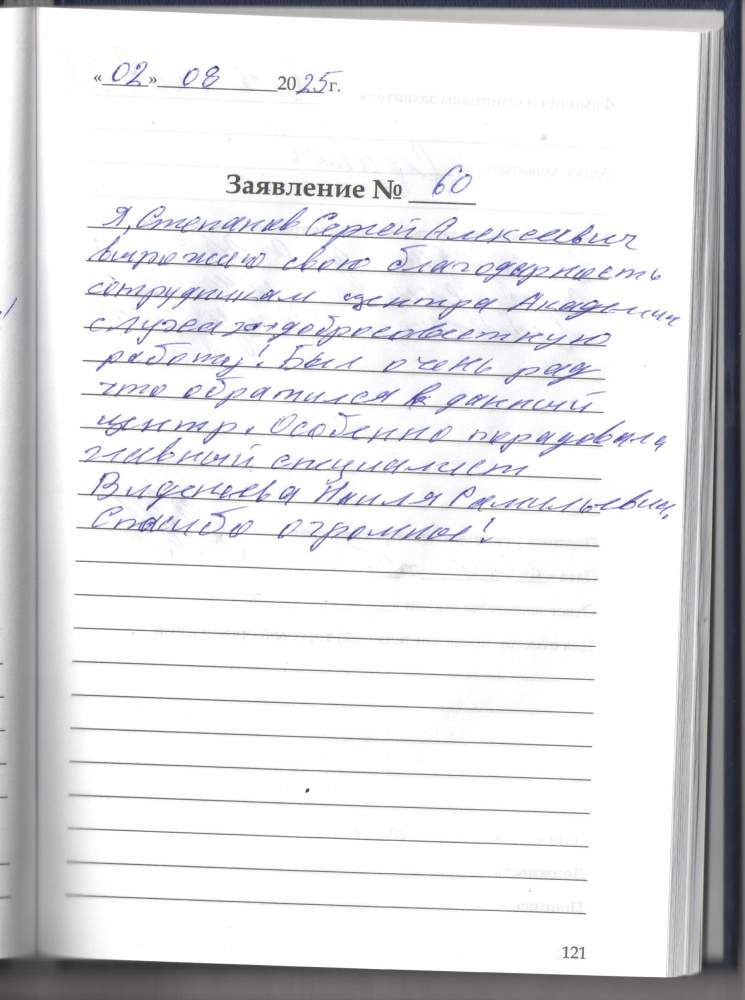 «02» 08 2025 г.
Заявление № 60
Я, Степанов Сергей Алексеевич
выражаю свою благодарность
сотрудникам центра Академии
слуха за добросовестную
работу! Был очень рад
что обратился в данный
центр. Особенно порадовала
главный специалист
Наиля Самильевна.
Спасибо огромное!
121